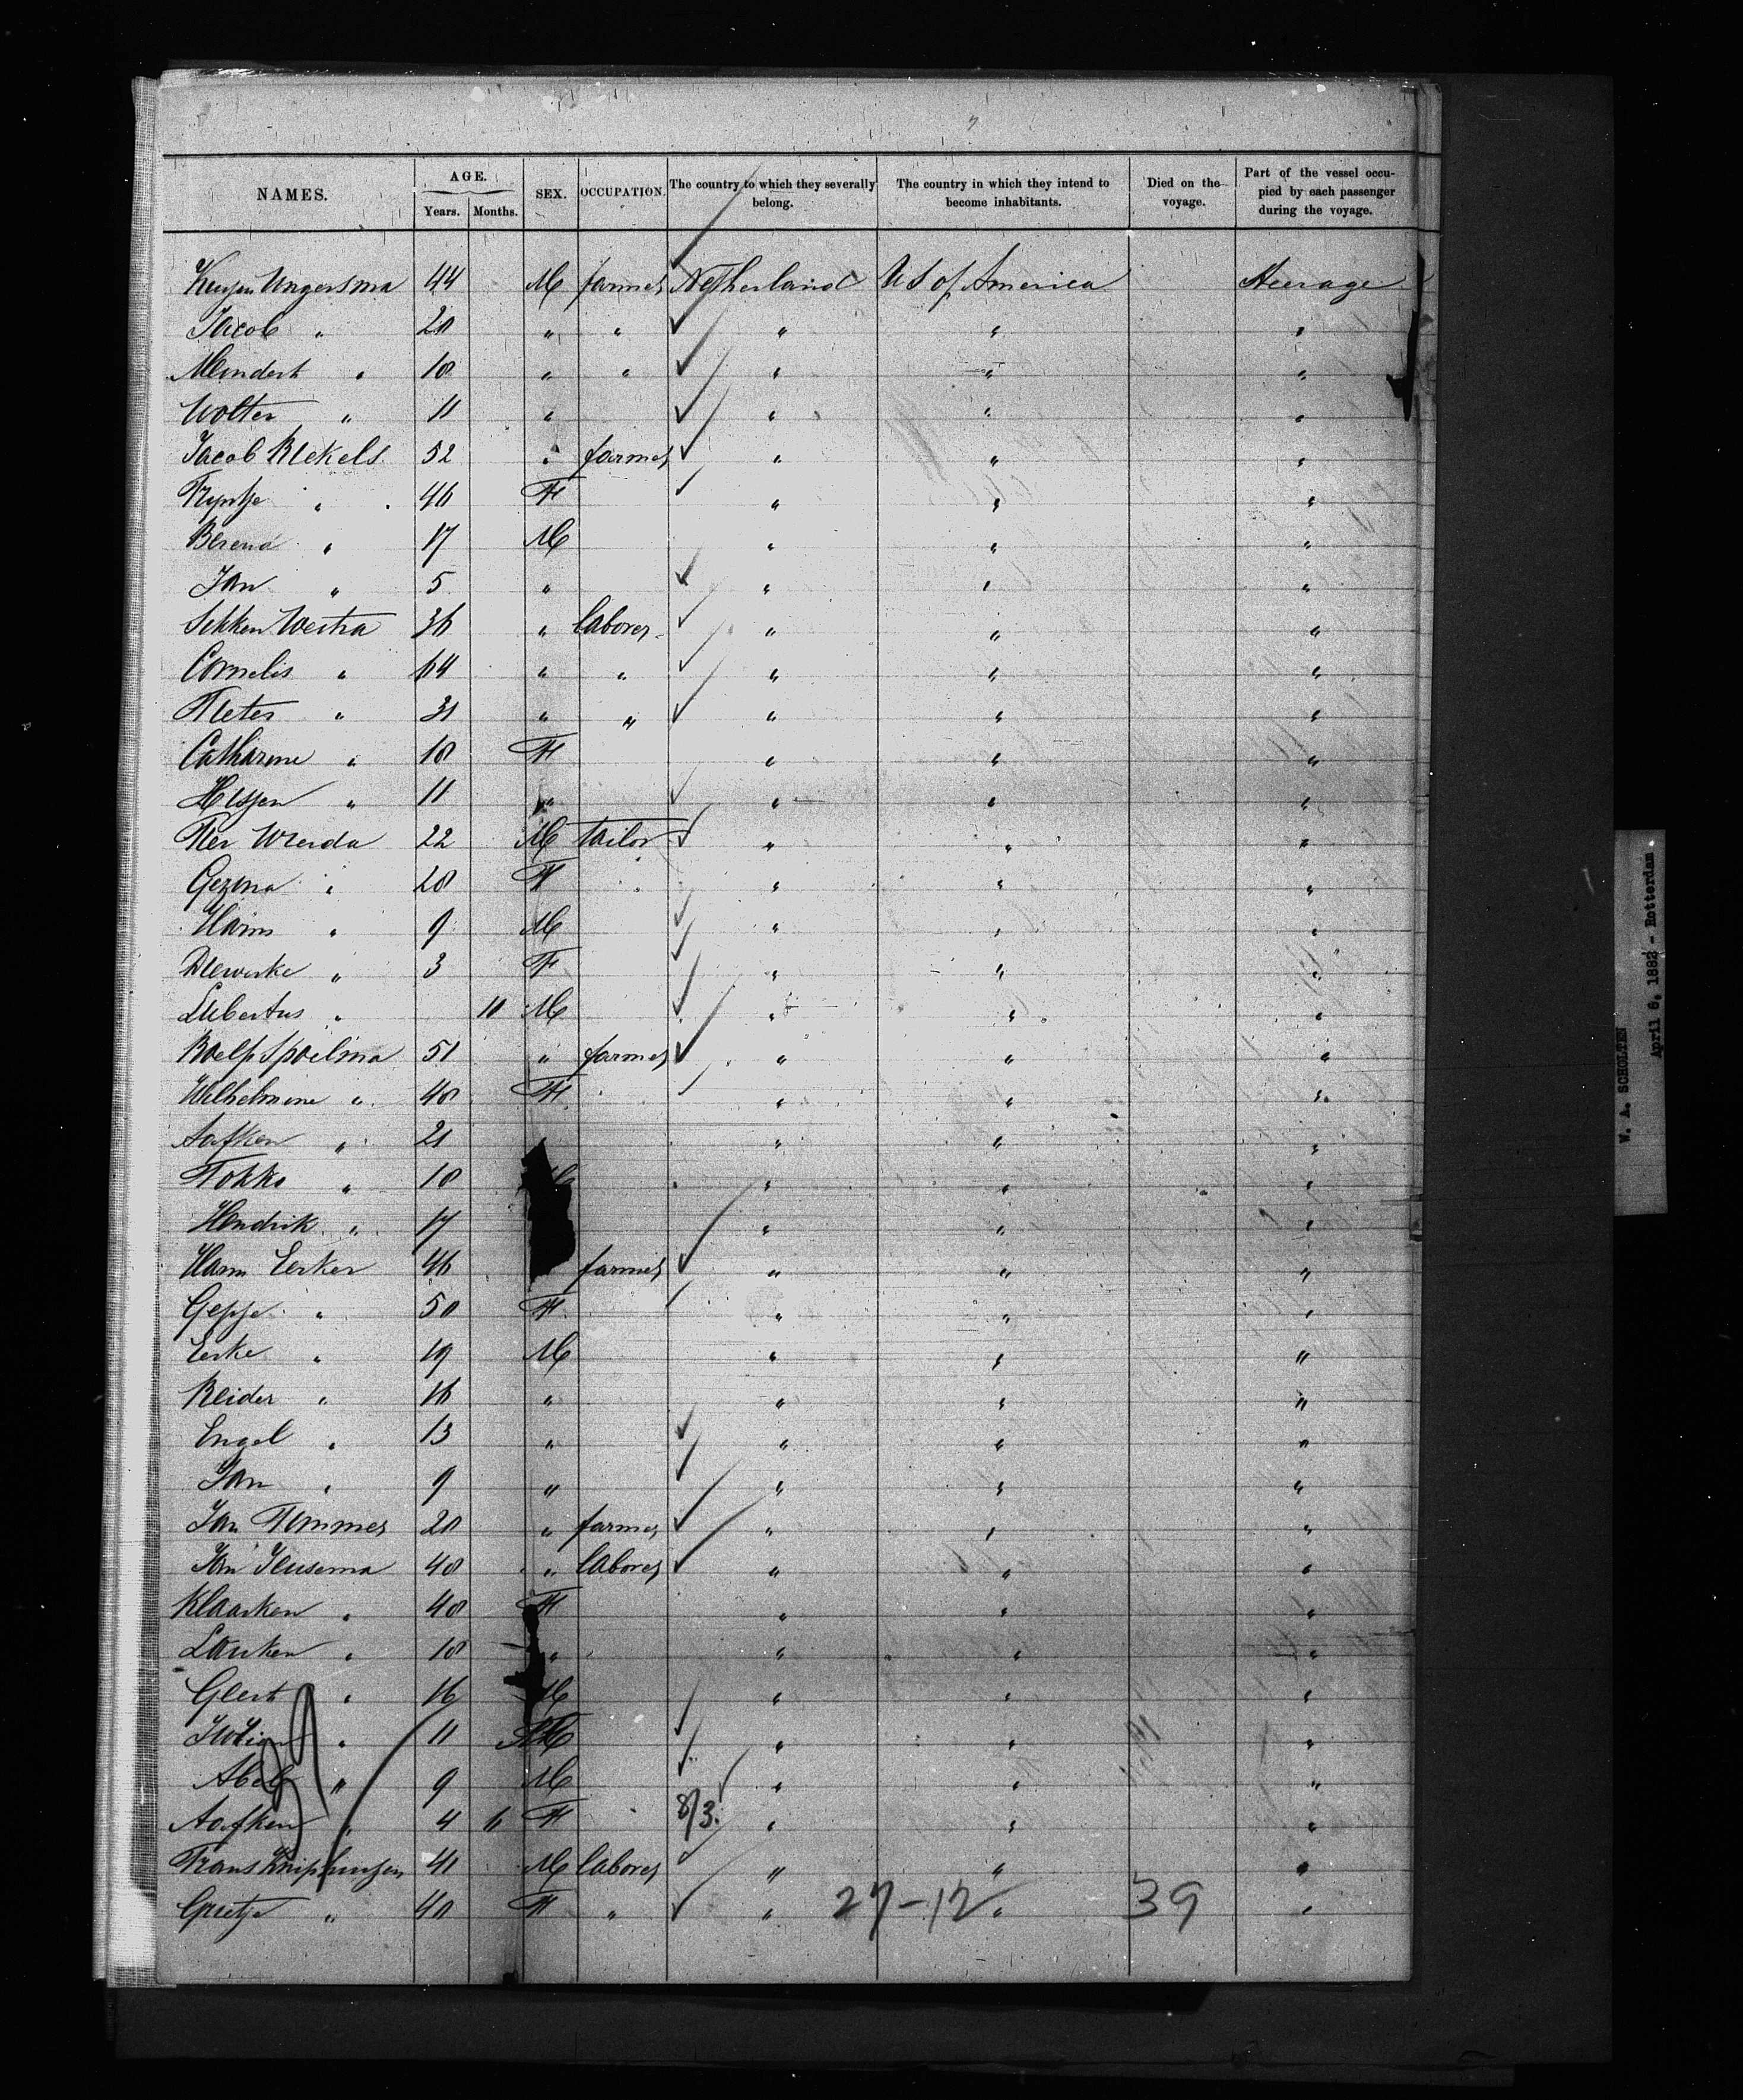 NAMES. AGE. Years. Months. SEX. OCCUPATION. The country to which they severally belong. The country in which they intend to become inhabitants. Died on the voyage. Part of the vessel occupied by each passenger during the voyage.
Ungersma 44 M farmer Netherland U S of America Steerage
Jacob " 20 " " " " "
Meindert " 18 " " " " "
Wolter " 11 " " " "
Jacob Bl­ekels 52 " farmer " " "
Tryntje " 46 F " " "
Berend " 17 M " " "
Jan " 5 " " " "
Westra 36 " laborer " " "
Cornelis " 64 " " " " "
Pieter " 31 " " " " "
Catharine " 18 F " " "
" 11 " " " "
22 M tailor " " "
Gezina " 28 F " " "
Harm " 9 M " " "
" 3 F " " "
Lubertus " 10 M " " "
Roelf Spoelma 51 " farmer " " "
Wilhelmine " 48 F " " "
Aafken " 21 " " "
Fokko " 18 " " "
Hendrik " 17 " " "
Harm Eerker 46 farmer " " "
" 50 F " " "
Eerke " 19 M " " "
Reider " 16 " " " "
Engel " 13 " " " "
Jan " 9 " " " "
Jan Timmer 20 " farmer " " "
Jan 48 " laborer " " "
Klaasken " 48 F " " "
" 18 " " " "
Geert " 16 M " " "
" 11 M " " "
Abel " 9 M " " "
Aafken " 4 6 F 8/3. " " "
Frans Kniphuizen 41 M laborer " " "
Grietje " 40 F " " " "
39
27-12 39
W. A. SCHOLTEN
April 6, 1882 - Rotterdam